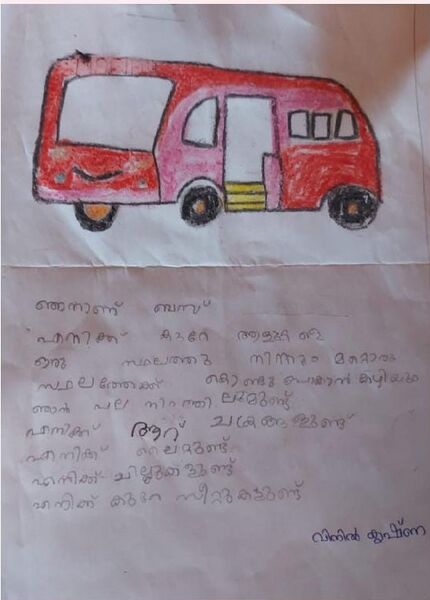 ഞനാണ് ബസ്സ്
എനിക്ക് കുറേ ആളുകളെ
ഒരു സ്ഥലത്തു നിന്നും മറ്റൊരു
സ്ഥലത്തേക്ക് കൊണ്ടുപോകാൻ കഴിയും
ഞാൻ പല നിറത്തിലുമുണ്ട്
എനിക്ക് ആറ് ചക്രങ്ങളുണ്ട്
എനിക്ക് ലൈറ്റുമുണ്ട്
എനിക്ക് ചില്ലുകളുണ്ട്
എനിക്ക് കുറേ സീറ്റുകളുണ്ട്
വിനിൽ കൃഷ്ണ